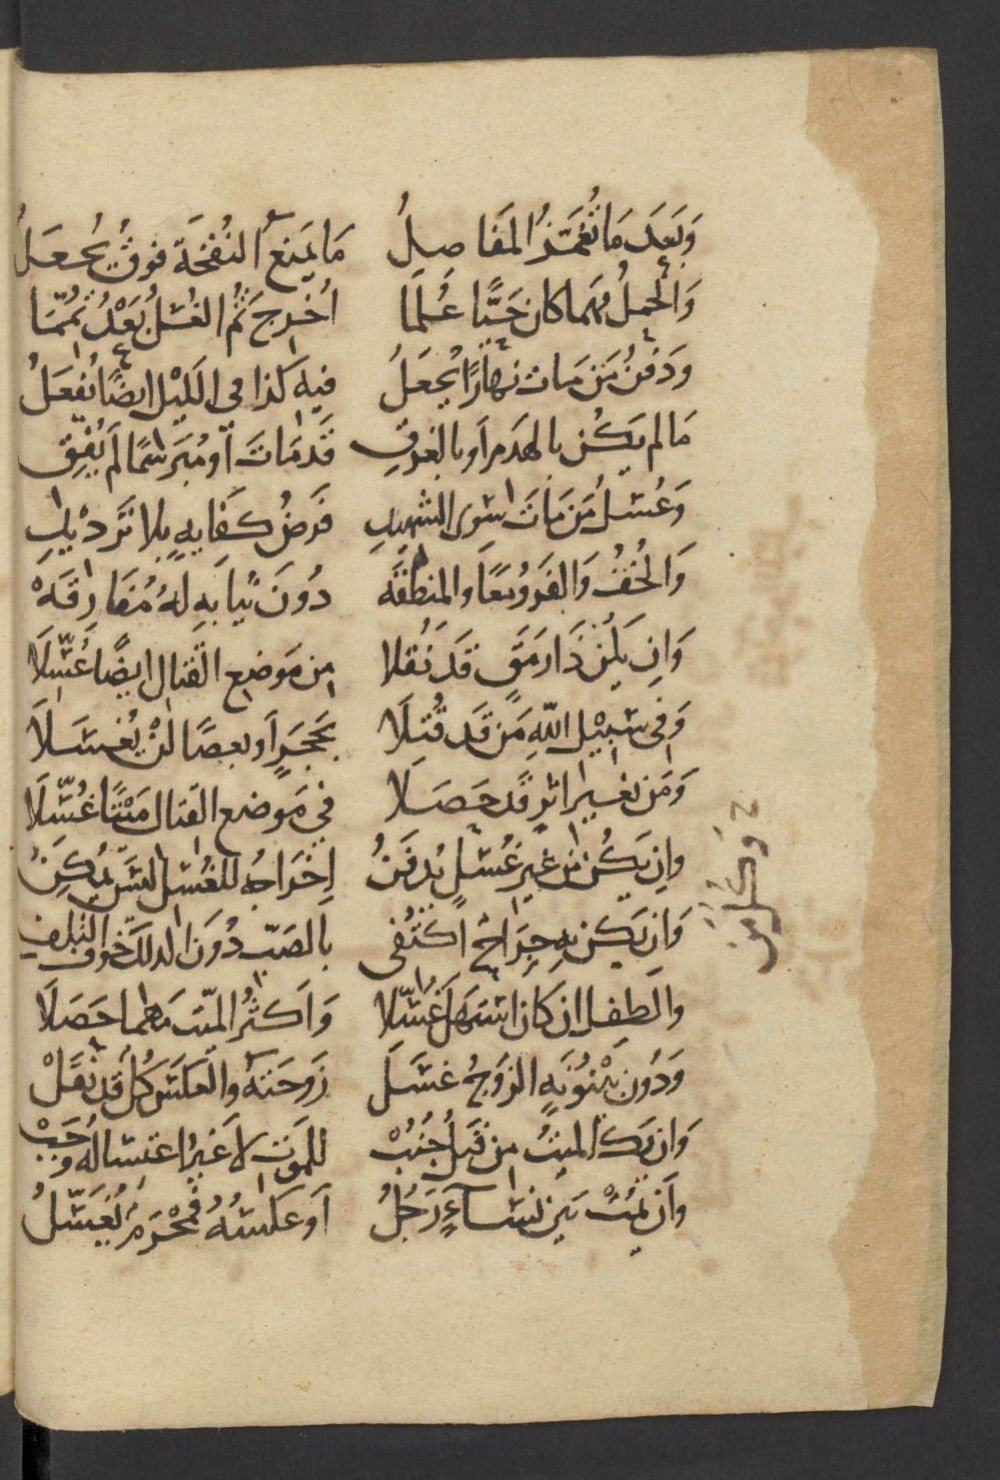 وَبَعدَ مَا تُغمَزُ المَفَاصِلُ مَا يَمنَعُ النُفخَةَ فوقُ يُجعَلُ
وَالحَملُ مهما كان حَيًّا عُلِمَا أُخرِجَ ثُم الغُسلُ بَعْدُ تُمِّمَا
وَدَفنُ مَن مات نهَارًا يُجعَلُ فيه كذا في الليْل ايضًا يُفعَلُ
مَا لم يَكُن بالهَدمِ أو بالغرقِ قَد مَاتَ أو مُبَرسَمًا لَم يُفِقِ
وَغُسلُ مَن مَاتَ سِوى الشهيدِ فَرضُ كفَايةٍ بِلا تَرديدِ
وَالخُفُّ وَالفَروُ معًا وَالمنطقَه دُونَ ثيابِهِ لهُ مُفَارِقَهْ
وَإن يَكُن ذَا رَمَقٍ قَد نُقلا مِن مَوضِعِ القتال ايضًا غُسِّلَا
وَفي سَبيْلِ اللَّهِ مَن قَد قُتلَا بحَجَرٍ أو بعصًا لنْ يُغسَلَا
وَمَن بغيرِ اثرٍ قد حَصَلَا في مَوضِع القتال مَيْتًا غُسِّلَا
وإن يَكُن مِن غيرِ غُسلٍ يُدفَنُ إخراجُه للغُسل ليسَ يُمكِنُ
وَان يَكن بهِ جِرَاحٌ اكتُفى بالصَبّ دُونَ الدلكِ خَوفَ التلفِ
والطفل إن كَان استهَلَّ غُسِّلا وَأكثرُ الميّت مَهما حَصَلَا
وَدُونَ بَيْنُونَةٍ الزَوجُ غسَلَ زَوجَتهُ والعكسُ كُلٌّ قد نُقلْ
وَان يَكُ الميتُ مِن قَبلُ جُنُبْ للمَوتِ لا غيرُ اغتسَالُه وَجَبْ
وَان يَمُتْ بَين نسَاءٍ رَجُلُ أو عكسُهُ فمَحْرَمٌ يُغَسِّلُ